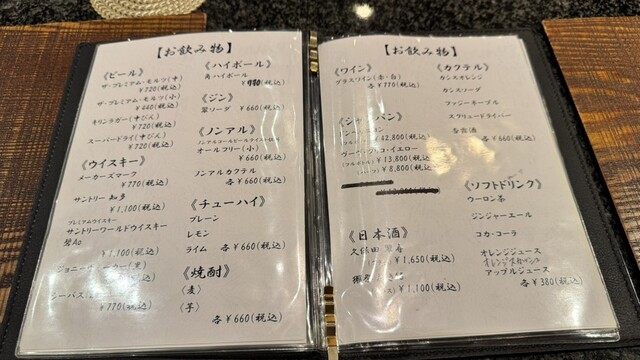 【お飲み物】
《ビール》
ザ・プレミアム・モルツ(中)
¥720(税込)
ザ・プレミアム・モルツ(小)
¥440(税込)
キリンラガー(中びん)
¥720(税込)
スーパードライ(中びん)
¥720(税込)
《ウイスキー》
メーカーズマーク
¥770(税込)
サントリー 知多
¥1,100(税込)
プレミアムウイスキー
サントリーワールドウイスキー
碧Ao
¥1,100(税込)
ジョニー (黒)
(税込)
シーバス
¥770(税込)
《ハイボール》
角ハイボール
(税込)
《ジン》
翠ソーダ ¥660(税込)
《ノンアル》
オールフリー(小)
¥660(税込)
ノンアルカクテル
各¥660(税込)
《チューハイ》
プレーン
レモン
ライム 各¥660(税込)
《焼酎》
〈麦〉
〈芋〉
各¥660(税込)
【お飲み物】
《ワイン》
グラスワイン(赤・白)
各¥770(税込)
《シャンパン》
¥42,800(税込)
イエロー
¥13,800(税込)
¥8,800(税込)
《日本酒》
久保田
¥1,650(税込)
¥1,100(税込)
《カクテル》
カシスオレンジ
カシスソーダ
ファジーネーブル
スクリュードライバー
各¥660(税込)
《ソフトドリンク》
ウーロン茶
ジンジャーエール
コカ・コーラ
オレンジジュース
アップルジュース
各¥380(税込)